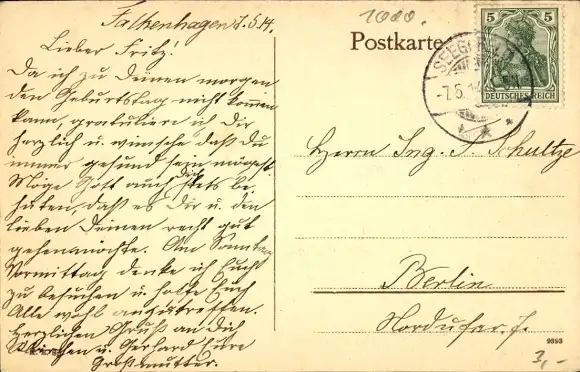 Falkenhagen 7.5.14.
Lieber Fritz!
Da ich zu Deinem morgen
den Geburtstag nicht komen
kann, gratuliere ich Dir
herzlich u. wünsche daß Du
immer gesund sein mögest.
Möge Gott auch Dich stets be
hüten, daß es Dir u. den
lieben Deinen recht gut
gehen möchte. Am Sonntag
Vormittag denke ich Euch
zu besuchen u. hoffe Euch
Alle wohl anzutreffen.
Herzlichen Gruß an Dich
u. Gerhard Eure
Großmutter.
1000.
Postkarte
5 5
DEUTSCHES REICH
SEEG
-7.5.1
Herrn Ing. Schultze
Berlin
Nordufer 7.
9393
3,-